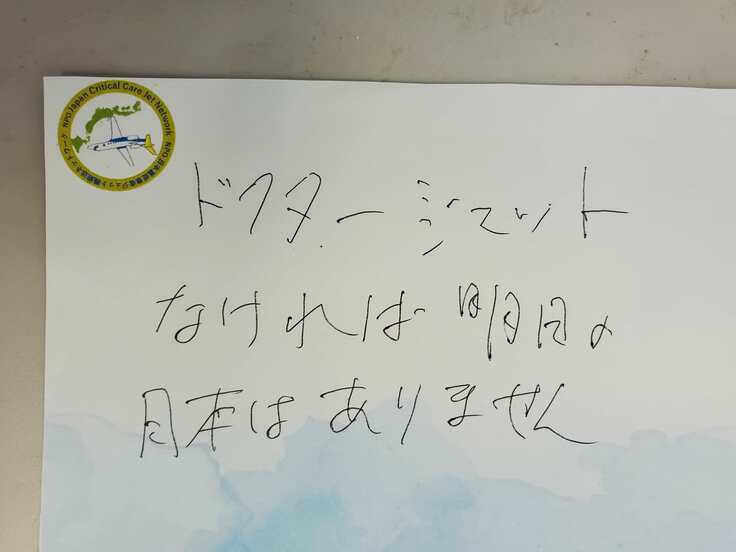 NPO Japan Critical Care Jet Network
NPO 日本重症患者ジェット機搬送ネットワーク
ドクタージェット
なければ明日の
日本はありません